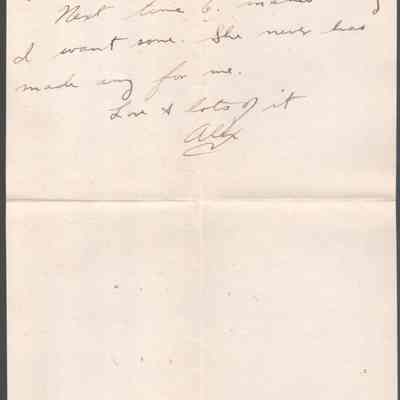 Next time G. makes
I want some. She never has
made any for me.
Love & lots of it
Alex